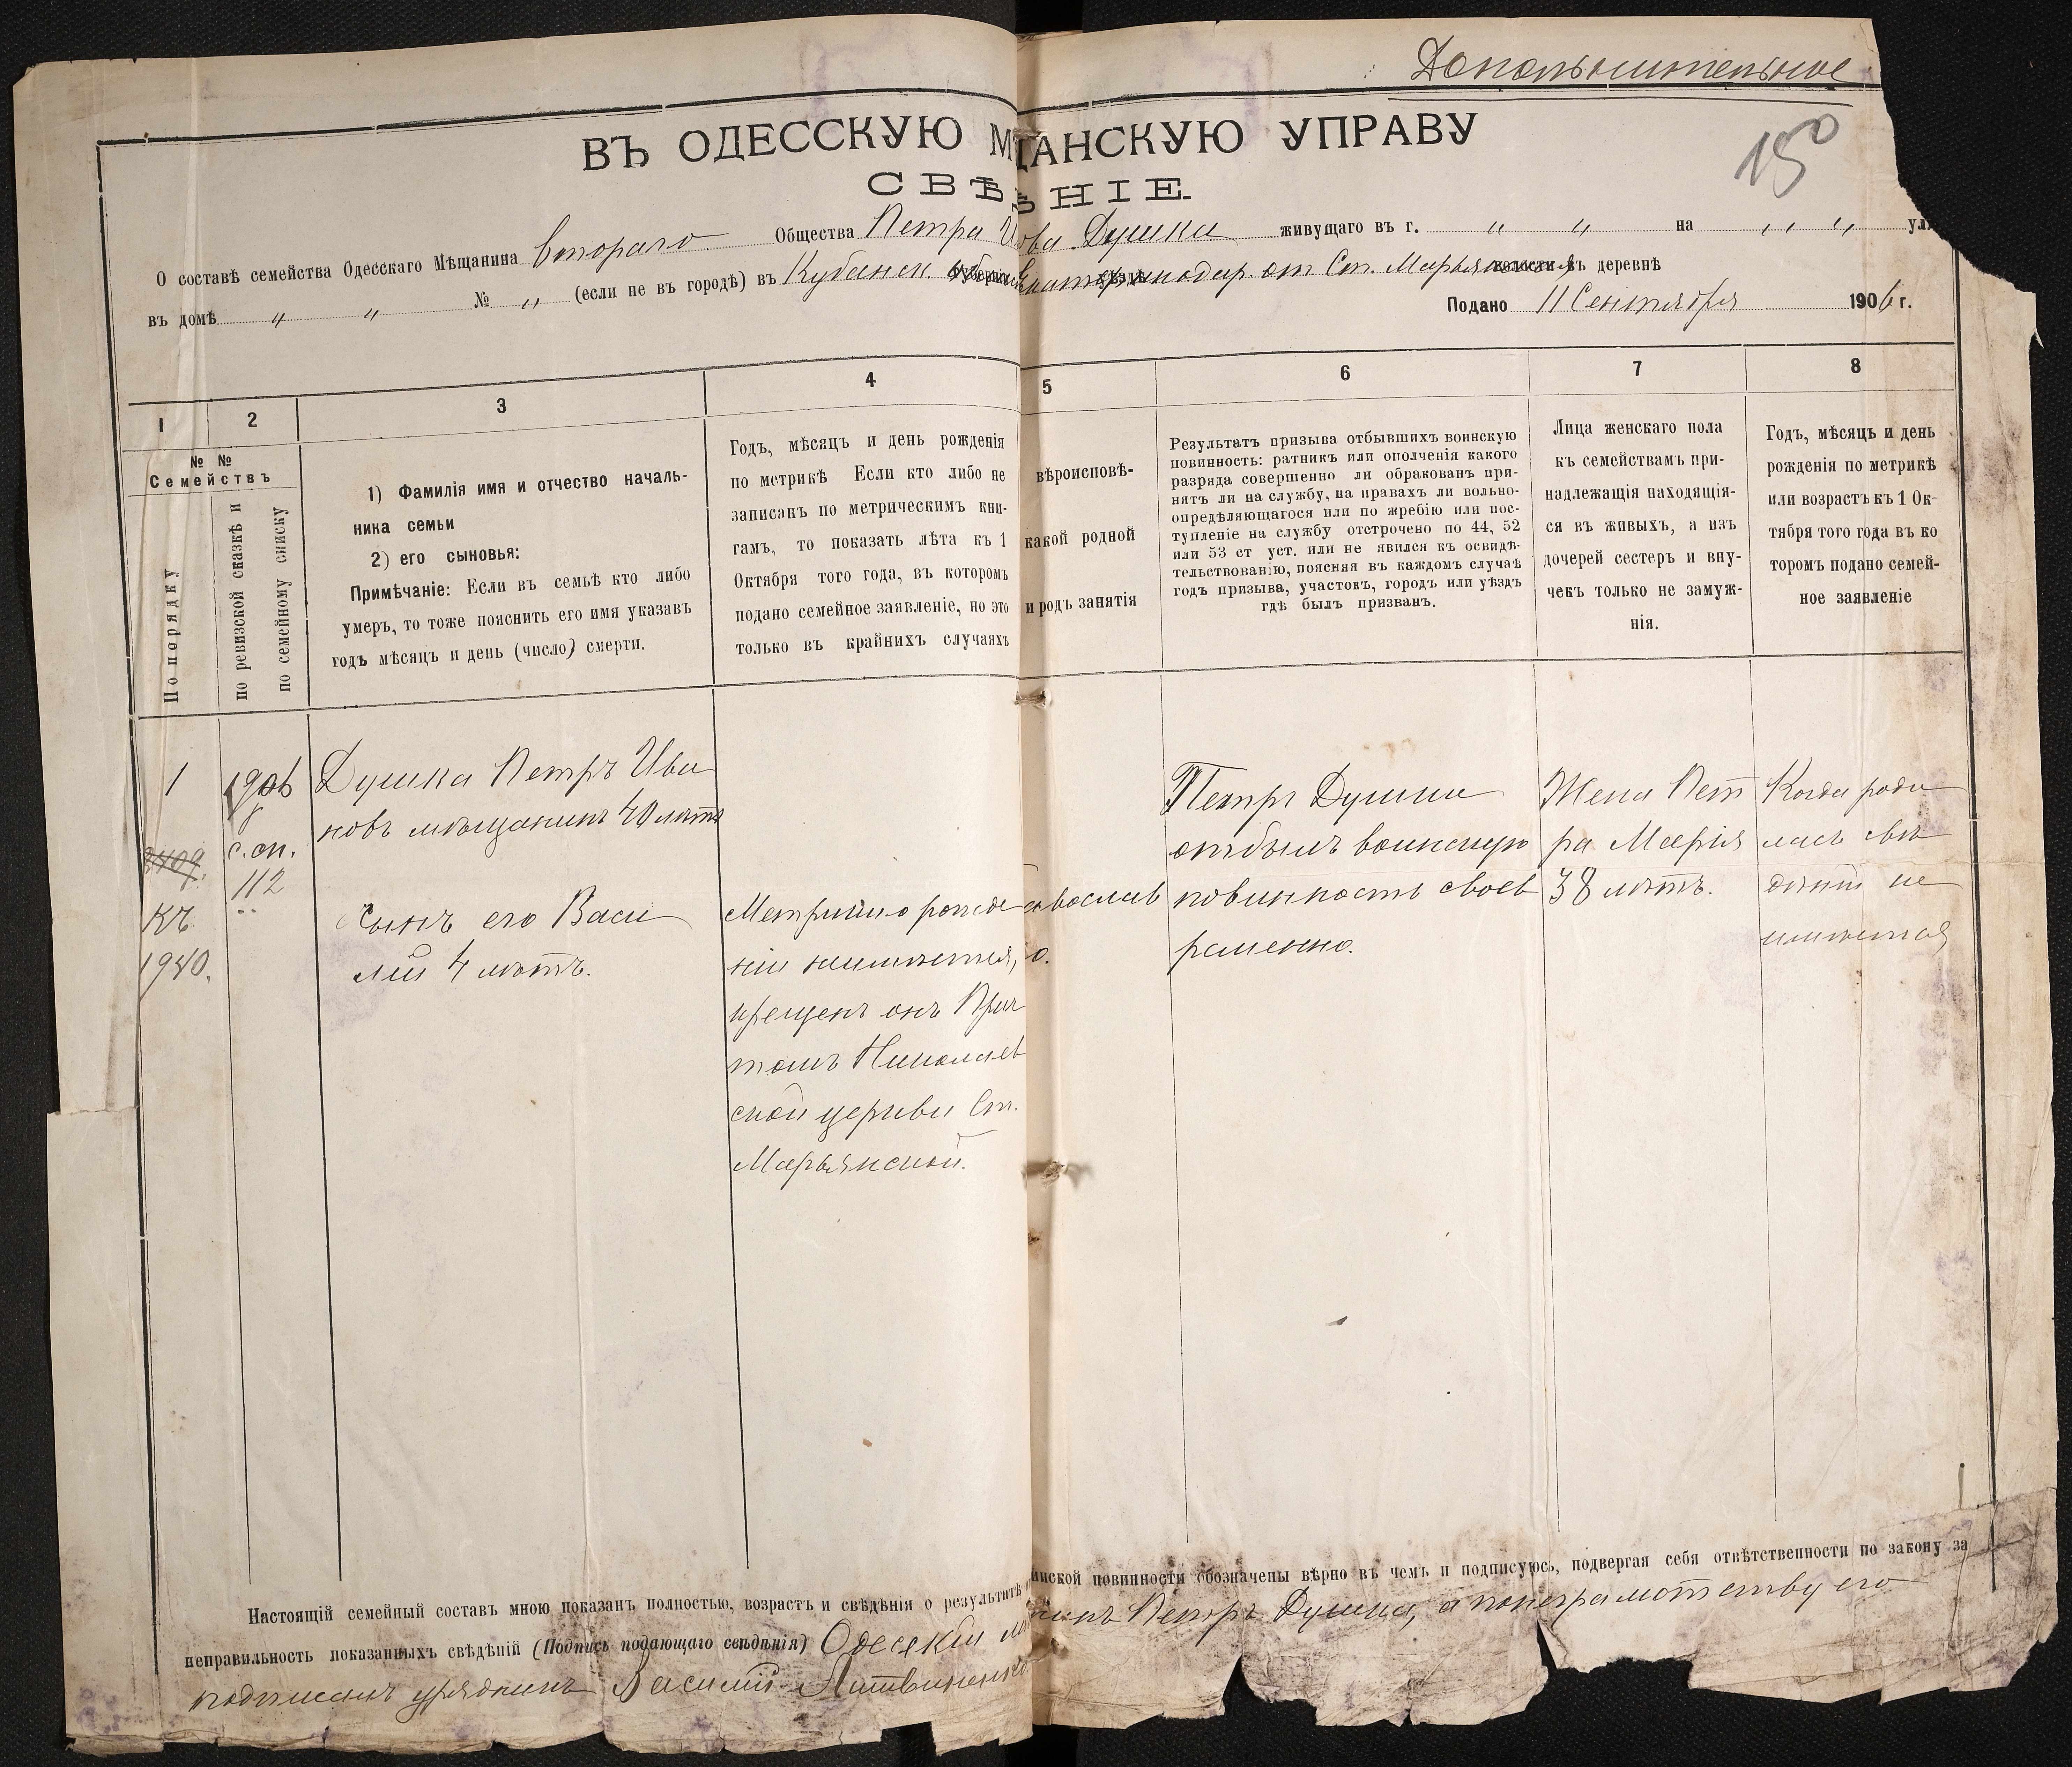 Дополнительное
150
ВЪ ОДЕССКУЮ М ЩАНСКУЮ УПРАВУ
СВѢ НІЕ.
О составѣ семейства Одесскаго Мѣщанина второго Общества Петра Ив ова Душка живущаго въ г. " " на " " ул
въ домѣ " " № " (если не въ городѣ) въ Кубанск. губерніи Екатеринодар. от Ст. Марьянская волости въ деревнѣ
Подано 11 Сентября 1906 г.
1 2 3 4 5 6 7 8
№ №
Семействъ
По порядку
по ревизской сказкѣ и
по семейному списку
1) Фамилія имя и отчество началь-
ника семьи
2) его сыновья:
Примѣчаніе: Если въ семьѣ кто либо
умеръ, то тоже пояснить его имя указавъ
годъ мѣсяцъ и день (число) смерти.
Годъ, мѣсяцъ и день рожденія
по метрикѣ Если кто либо не
записанъ по метрическимъ кни-
гамъ, то показать лѣта къ 1
Октября того года, въ которомъ
подано семейное заявленіе, но это
только въ крайнихъ случаяхъ
вѣроисповѣ-
какой родной
и родъ занятія
Результатъ призыва отбывшихъ воинскую
повинность: ратникъ или ополченія какого
разряда совершенно ли обракованъ при-
нятъ ли на службу, на правахъ ли вольно-
опредѣляющагося или по жребію или пос-
тупленіе на службу отстрочено по 44, 52
или 53 ст уст. или не явился къ освидѣ-
тельствованію, поясняя въ каждомъ случаѣ
годъ призыва, участокъ, городъ или уѣздъ
гдѣ былъ призванъ.
Лица женскаго пола
къ семействамъ при-
надлежащія находящія-
ся въ живыхъ, а изъ
дочерей сестеръ и вну-
чекъ только не замуж-
нія.
Годъ, мѣсяцъ и день
рожденія по метрикѣ
или возрастъ къ 1 Ок-
тября того года въ ко
торомъ подано семей-
ное заявленіе
1
2409.
къ
1940.
с. сп.
112
Душка Петръ Ива
новъ мѣщанинъ 40 лѣтъ
Сынъ его Васи
лій 4 лѣтъ.
Метрики о рожде
ніи неимѣется,
крещенъ онъ Прич
томъ Николаев
ской церкви Ст.
Марьянской.
авослав
о.
Петръ Душка
отбылъ воинскую
повинность своев
ременно.
Жена Пет
ра Марія
38 лѣтъ.
Когда роди
лась свѣ
дѣній не
имѣется
Настоящій семейный составъ мною показанъ полностью, возрастъ и свѣдѣнія о результатѣ инской повинности обозначены вѣрно въ чемъ и подписуюсь, подвергая себя отвѣтственности по закону за
неправильность показанныхъ свѣдѣній (Подпись подающаго свѣдѣнія) Одесскій мѣ нинъ Петръ Душка, а по неграмотству его
подписалъ урядникъ Василій Литвиненко